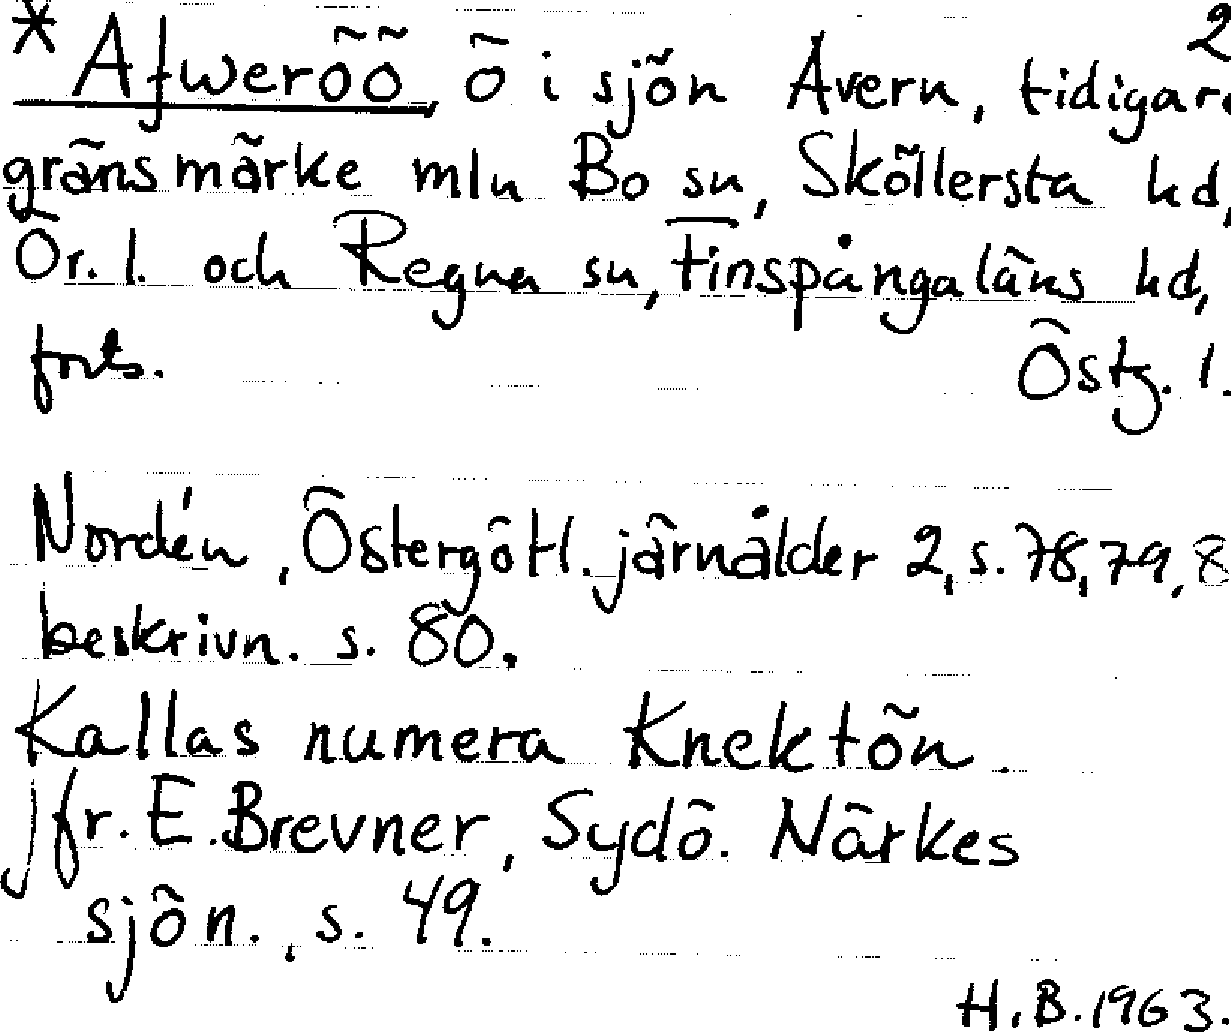 2
* Afweröö, ö i sjön Avern, tidigare
gränsmärke mln Bo sn, Sköllersta hd,
Ör. l. och Regna sn, Finspångaläns hd,
forts. Östg. l.
Nordén, Östergötl. järnålder 2, s. 78, 79, 8
beskrivn. s. 80.
Kallas numera Knektön.
jfr. E. Brevner, Sydö. Närkes
sjön., s. 49.
H. B. 1963.